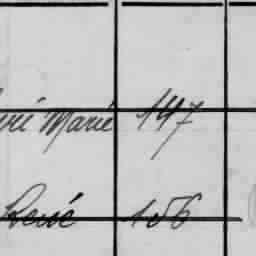 Marie 147
René 156